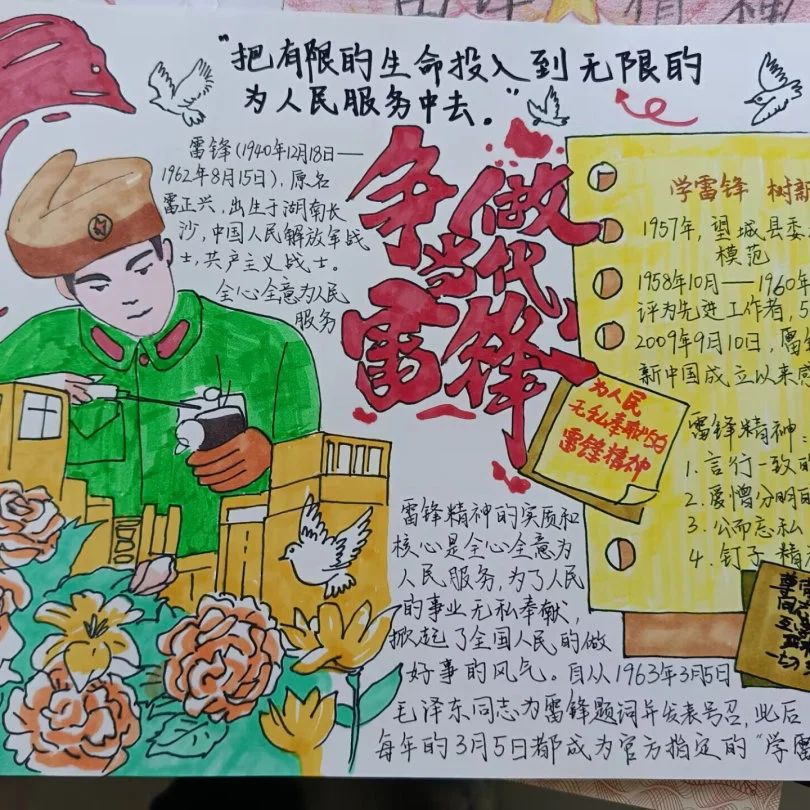 "把有限的生命投入到无限的
为人民服务中去。"
雷锋(1940年12月18日——
1962年8月15日),原名
雷正兴,出生于湖南长
沙,中国人民解放军战
士,共产主义战士。
全心全意为人民
服务
争做
当代
雷锋
学雷锋 树新
1957年,望城县委
模范
1958年10月——1960年
评为先进工作者,5
2009年9月10日,雷锋
新中国成立以来感
为人民
无私奉献的
雷锋精神
雷锋精神:
1.言行一致的
2.爱憎分明的
3.公而忘私
4.钉子精神
雷锋精神的实质和
核心是全心全意为
人民服务,为了人民
的事业无私奉献,
掀起了全国人民的做
好事的风气。自从1963年3月5日
毛泽东同志为雷锋题词并发表号召,此后
每年的3月5日都成为官方指定的"学雷